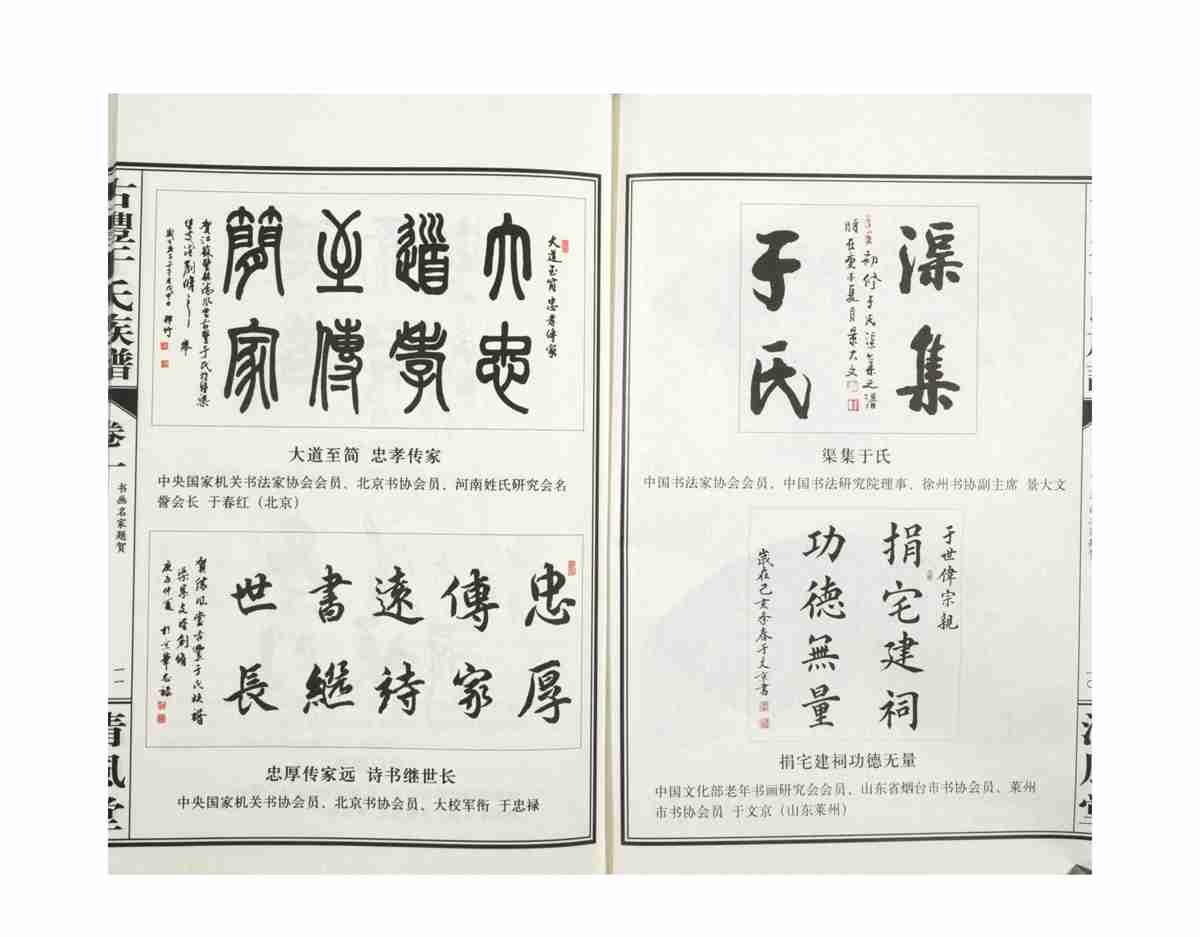 渠集
于氏
渠集于氏
中国书法家协会会员、中国书法研究院理事、徐州书协副主席 景大文
于世偉宗親
捐宅建祠
功德無量
歲在己亥余春于文京書
捐宅建祠功德无量
中国文化部老年书画研究会会员、山东省烟台市书协会员、莱州
市书协会员 于文京（山东莱州）
清风堂
古豐于氏族譜
卷一
书画名家题贺
一一
清風堂
大道至简 忠孝传家
大忠
道孝
至傳
簡家
大道至简 忠孝传家
中央国家机关书法家协会会员、北京书协会员、河南姓氏研究会名
誉会长 于春红（北京）
忠厚
傳家
遠詩
書繼
世長
忠厚传家远 诗书继世长
中央国家机关书协会员、北京书协会员、大校军衔 于忠禄